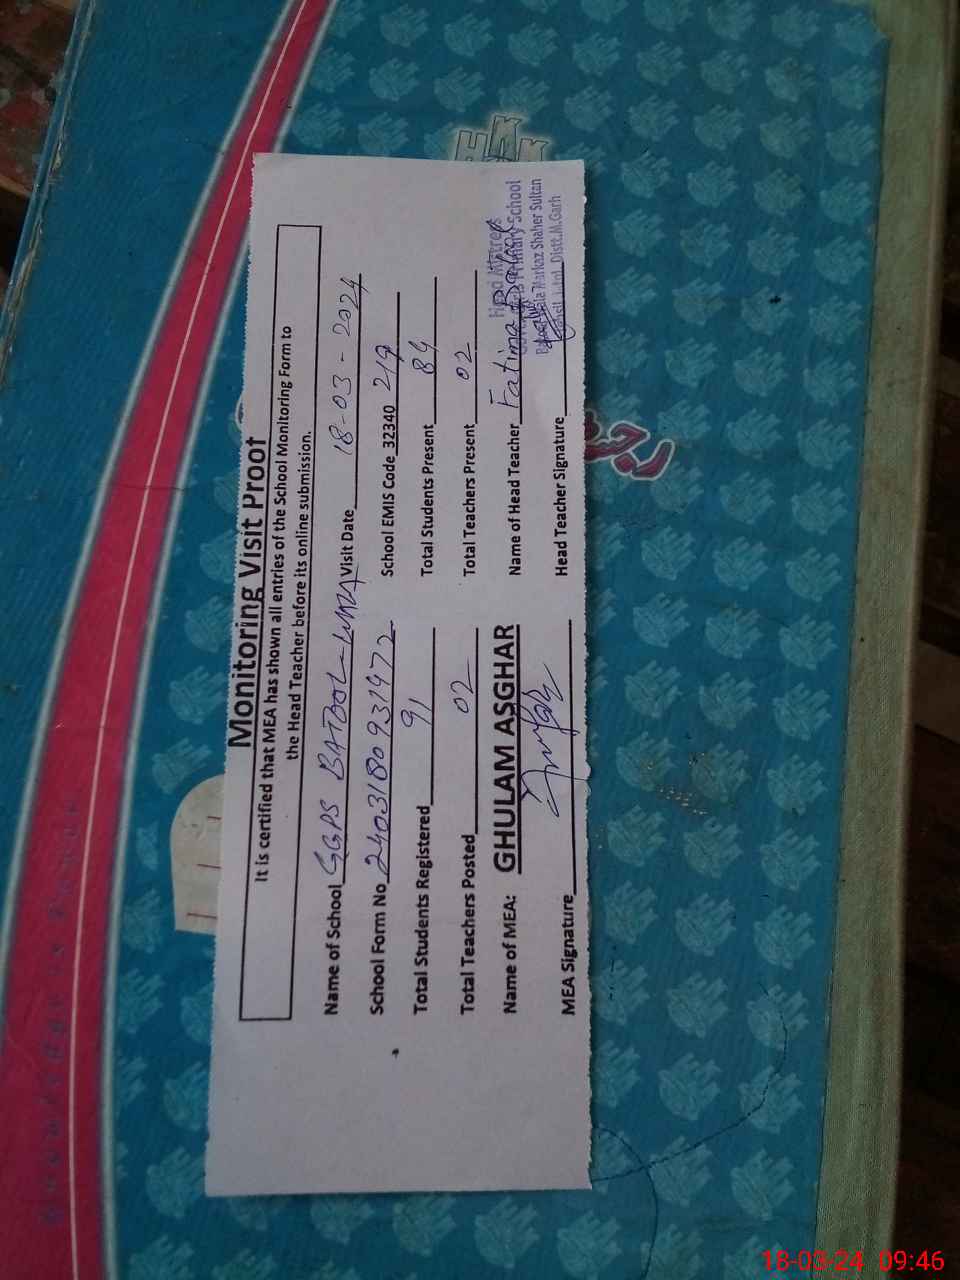 Monitoring Visit Proof
It is certified that MEA has shown all entries of the School Monitoring Form to
the Head Teacher before its online submission.
Name of School GGPS BATOOL-WALA Visit Date 18-03-2024
School Form No 24031809931972 School EMIS Code 32340 219
Total Students Registered 91 Total Students Present 84
Total Teachers Posted 02 Total Teachers Present 02
Name of MEA: GHULAM ASGHAR Name of Head Teacher Fatima Batool
MEA Signature Head Teacher Signature
Head Mistress
Govt. Girls Primary School
Wala Markaz Shaher Sultan
Distt.M.Garh
رجسٹر
18-03-24 09:46